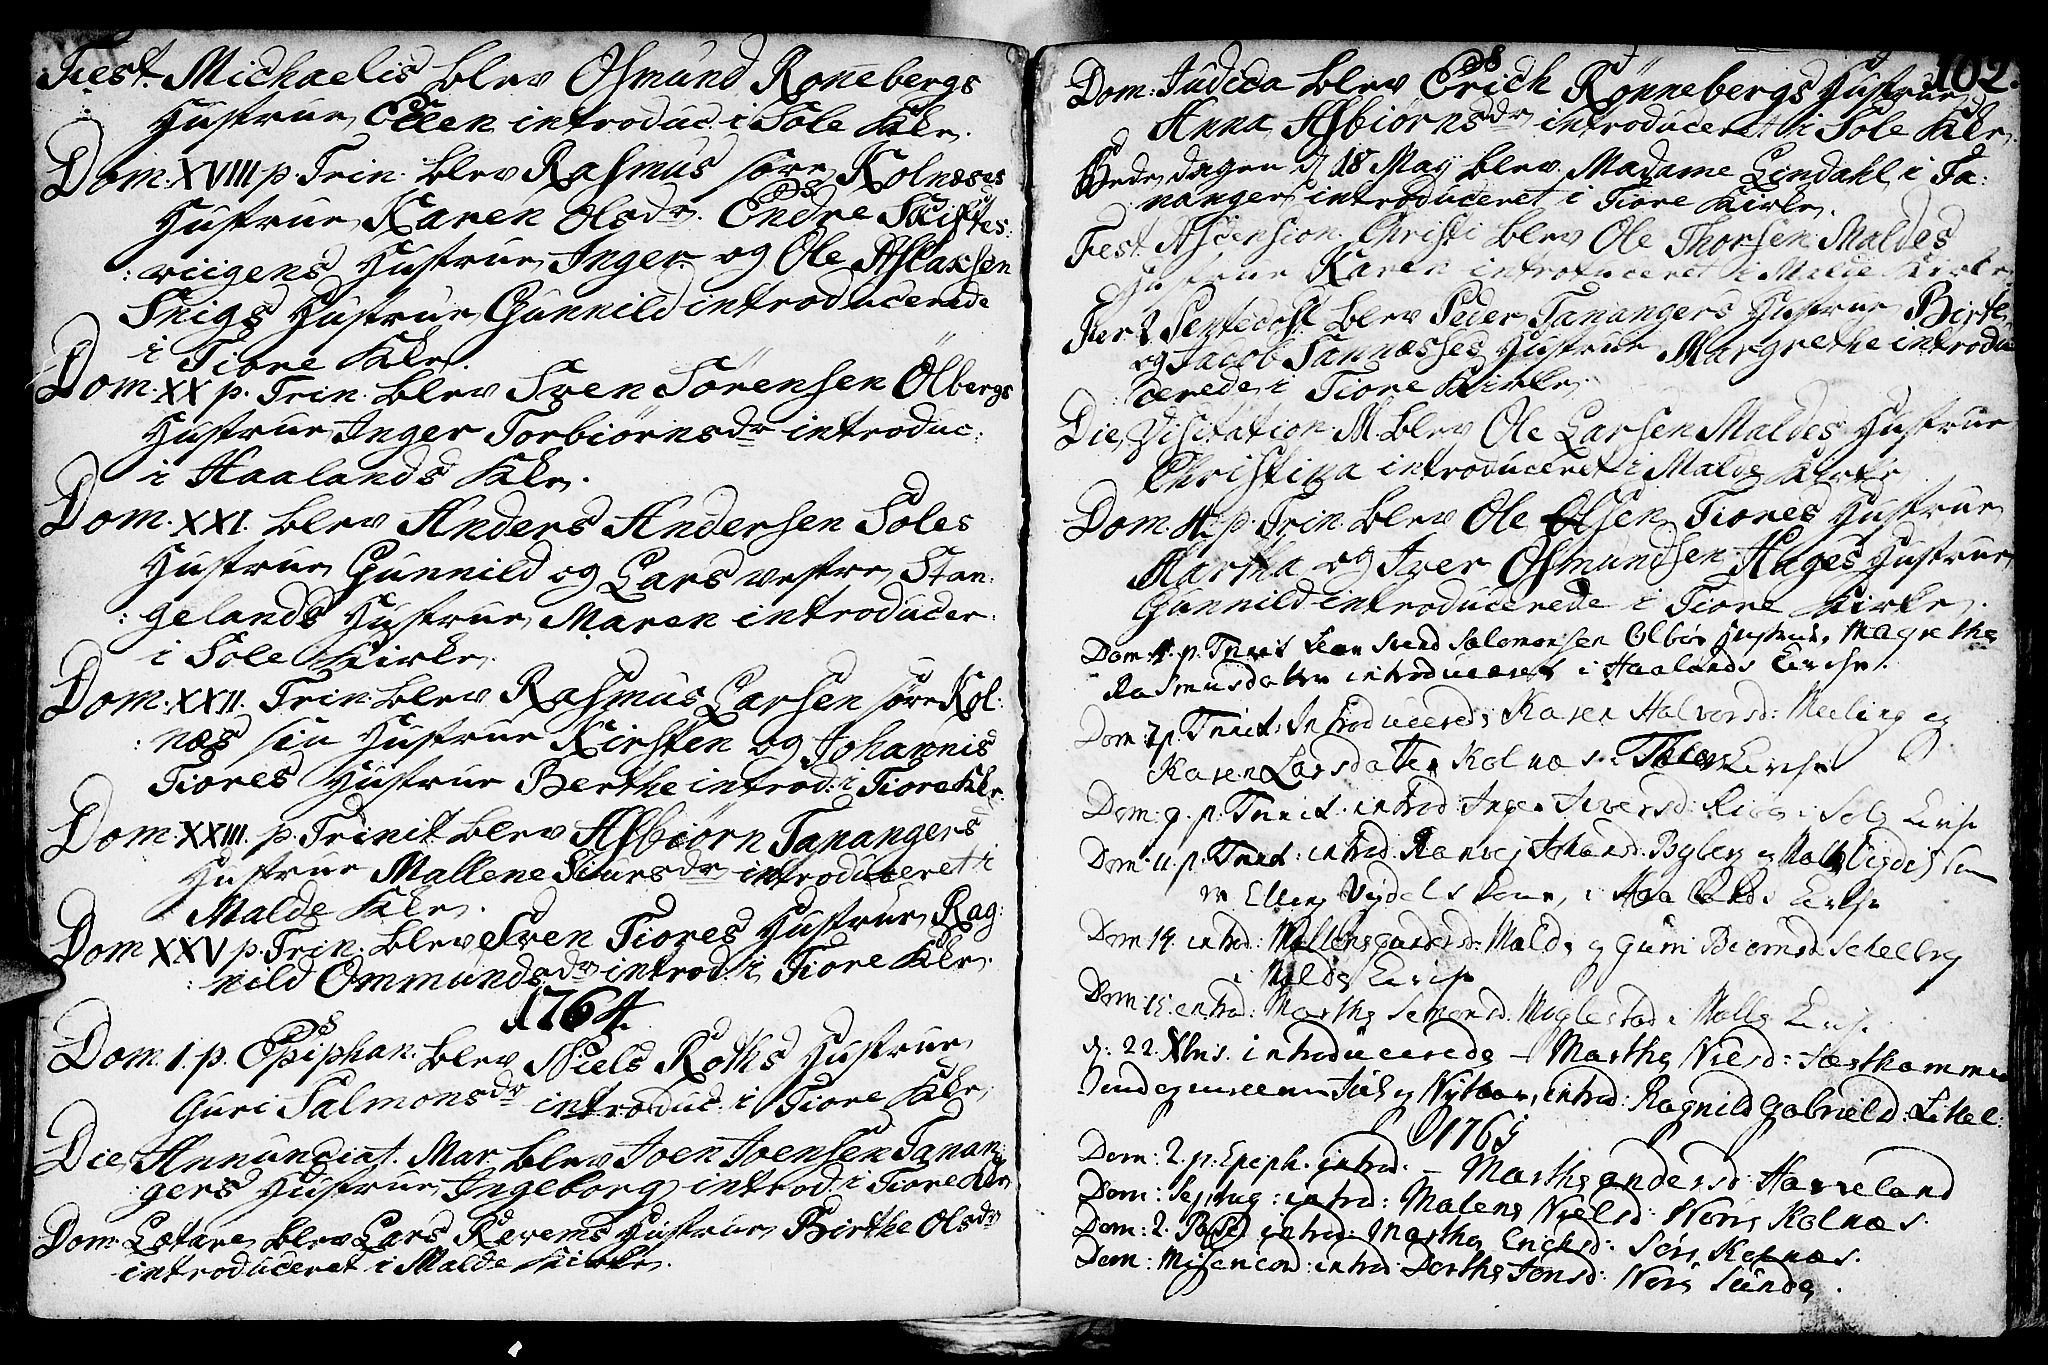 Fest. Michaelis blev Osmund Rønebergs
Hustrue Ellen introduc. i Sole Kkr.
Dom. XVIII p. Trin. blev Rasmus søre Kolnæses
Hustrue Karen Olsdr. Endre
:viigens Hustrue Inger og Ole Aslaksen
Snigs Hustrue Gunnild introducerede
i Tiore Kkr.
Dom. XX p. Trin. blev Sven Sørensen Ølbergs
Hustrue Inger Torbiørnsdr introduc:
i Haalands Kkr.
Dom. XXI. blev Anders Andersen Soles
Hustrue Gunnild og Lars vestre Stan:
:gelands Hustrue Maren introducer.
i Sole Kirke.
Dom. XXII. Trin. blev Rasmus Larsen søre Kol:
:næs sin Hustrue Kirsten og Johannis
Tiores Hustrue Berthe introd: i Tiore Kkr.
Dom. XXIII. p. Trinit blev Asbiørn Tanangers
Hustrue Mallene Siursdr introduceret i
Malde Kkr.
Dom XXV p. Trin. blev Sven Tiores Hustrue Rag:
:nild Ommundsdr introd. i Tiore Kkr.
1764.
Dom. 1. p. Epiphan. blev Niels Roths Hustrue
Guri Salmonsdr introduc. i Tiore Kkr.
Die Annunciat. Mar. blev Joen Joensen Tanan:
gers Hustrue Ingeborg introd. i Tiore Kkr
Dom. Lætare blev Lars Revems Hustrue Birthe Olsdr
introduceret i Malde Kirke.
102.
Dom: Judica blev Erich Rønnebergs Hustrue
Anna Asbiørnsdr introduceret i Sole Kkr.
Bededagen d 18 May blev Madame Lindahl i Ta:
nanger introduceret i Tiore Kirke.
Fest. Ascension Christi blev Ole Thorsen Maldes
Hustrue Karen introduceret i Malde Kirke
Fer 2 Pentecost blev Peder Tanangers Hustrue Birte
og Jacob Hustrue Margrethe introdu
:cerede i Tiore Kirke.
Die Visitation. M. blev Ole Larsen Maldes Hustrue
Christina introduceret i Malde Kirke
Dom. 4. p. Trin. blev Ole Olsen Tiores Hustrue
Martha og Iver Osmundsen Hages Hustrue
Gunnild introducerede i Tiore Kirke.
Dom. p. Trinit blev Svend Salomonsen Hustrue Magrethe
Rasmusdatter introduceret i Haalands Kirche.
Dom: 7 p. Trinit: Introducerede Karen Halvorsd: Meeling og
Karen Larsdatter Kolnæs i Kirche
Dom: 9. p. Trinit: introd: Inger Iversd: i Sole Kirche
Dom: 11. p. Trinit: introd. og
Elling i Haalands Kirche
Dom 14. introd: Malde og Guri Biørnsd
i Malde Kirche
Dom: 15. introd: Marthe Simonsd. i Malde Kirche
d: 22. Xbris. introducerede – Marthe Nielsd:
introd: Ragnild Gabrielsd:
1765
Dom: 2. p. Epiph. introd. – Marthe Andersd: Haveland
Dom: Septuag: introd: Malene Nielsd: Nøre Kolnæs.
Dom: 2. introd: Marthe Erichsd: Søre Kolnæs.
Dom: Misericord: introd: Dorthe Jonsd: Nøre Sunde.